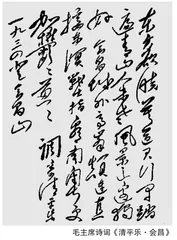 东方欲晓莫道君行早踏
遍青山人未老风景这边独
好会昌城外高峰颠连直
接东溟战士指看南粤更
加郁郁葱葱 调寄清平乐
一九三四 登会昌山
毛主席诗词《清平乐·会昌》